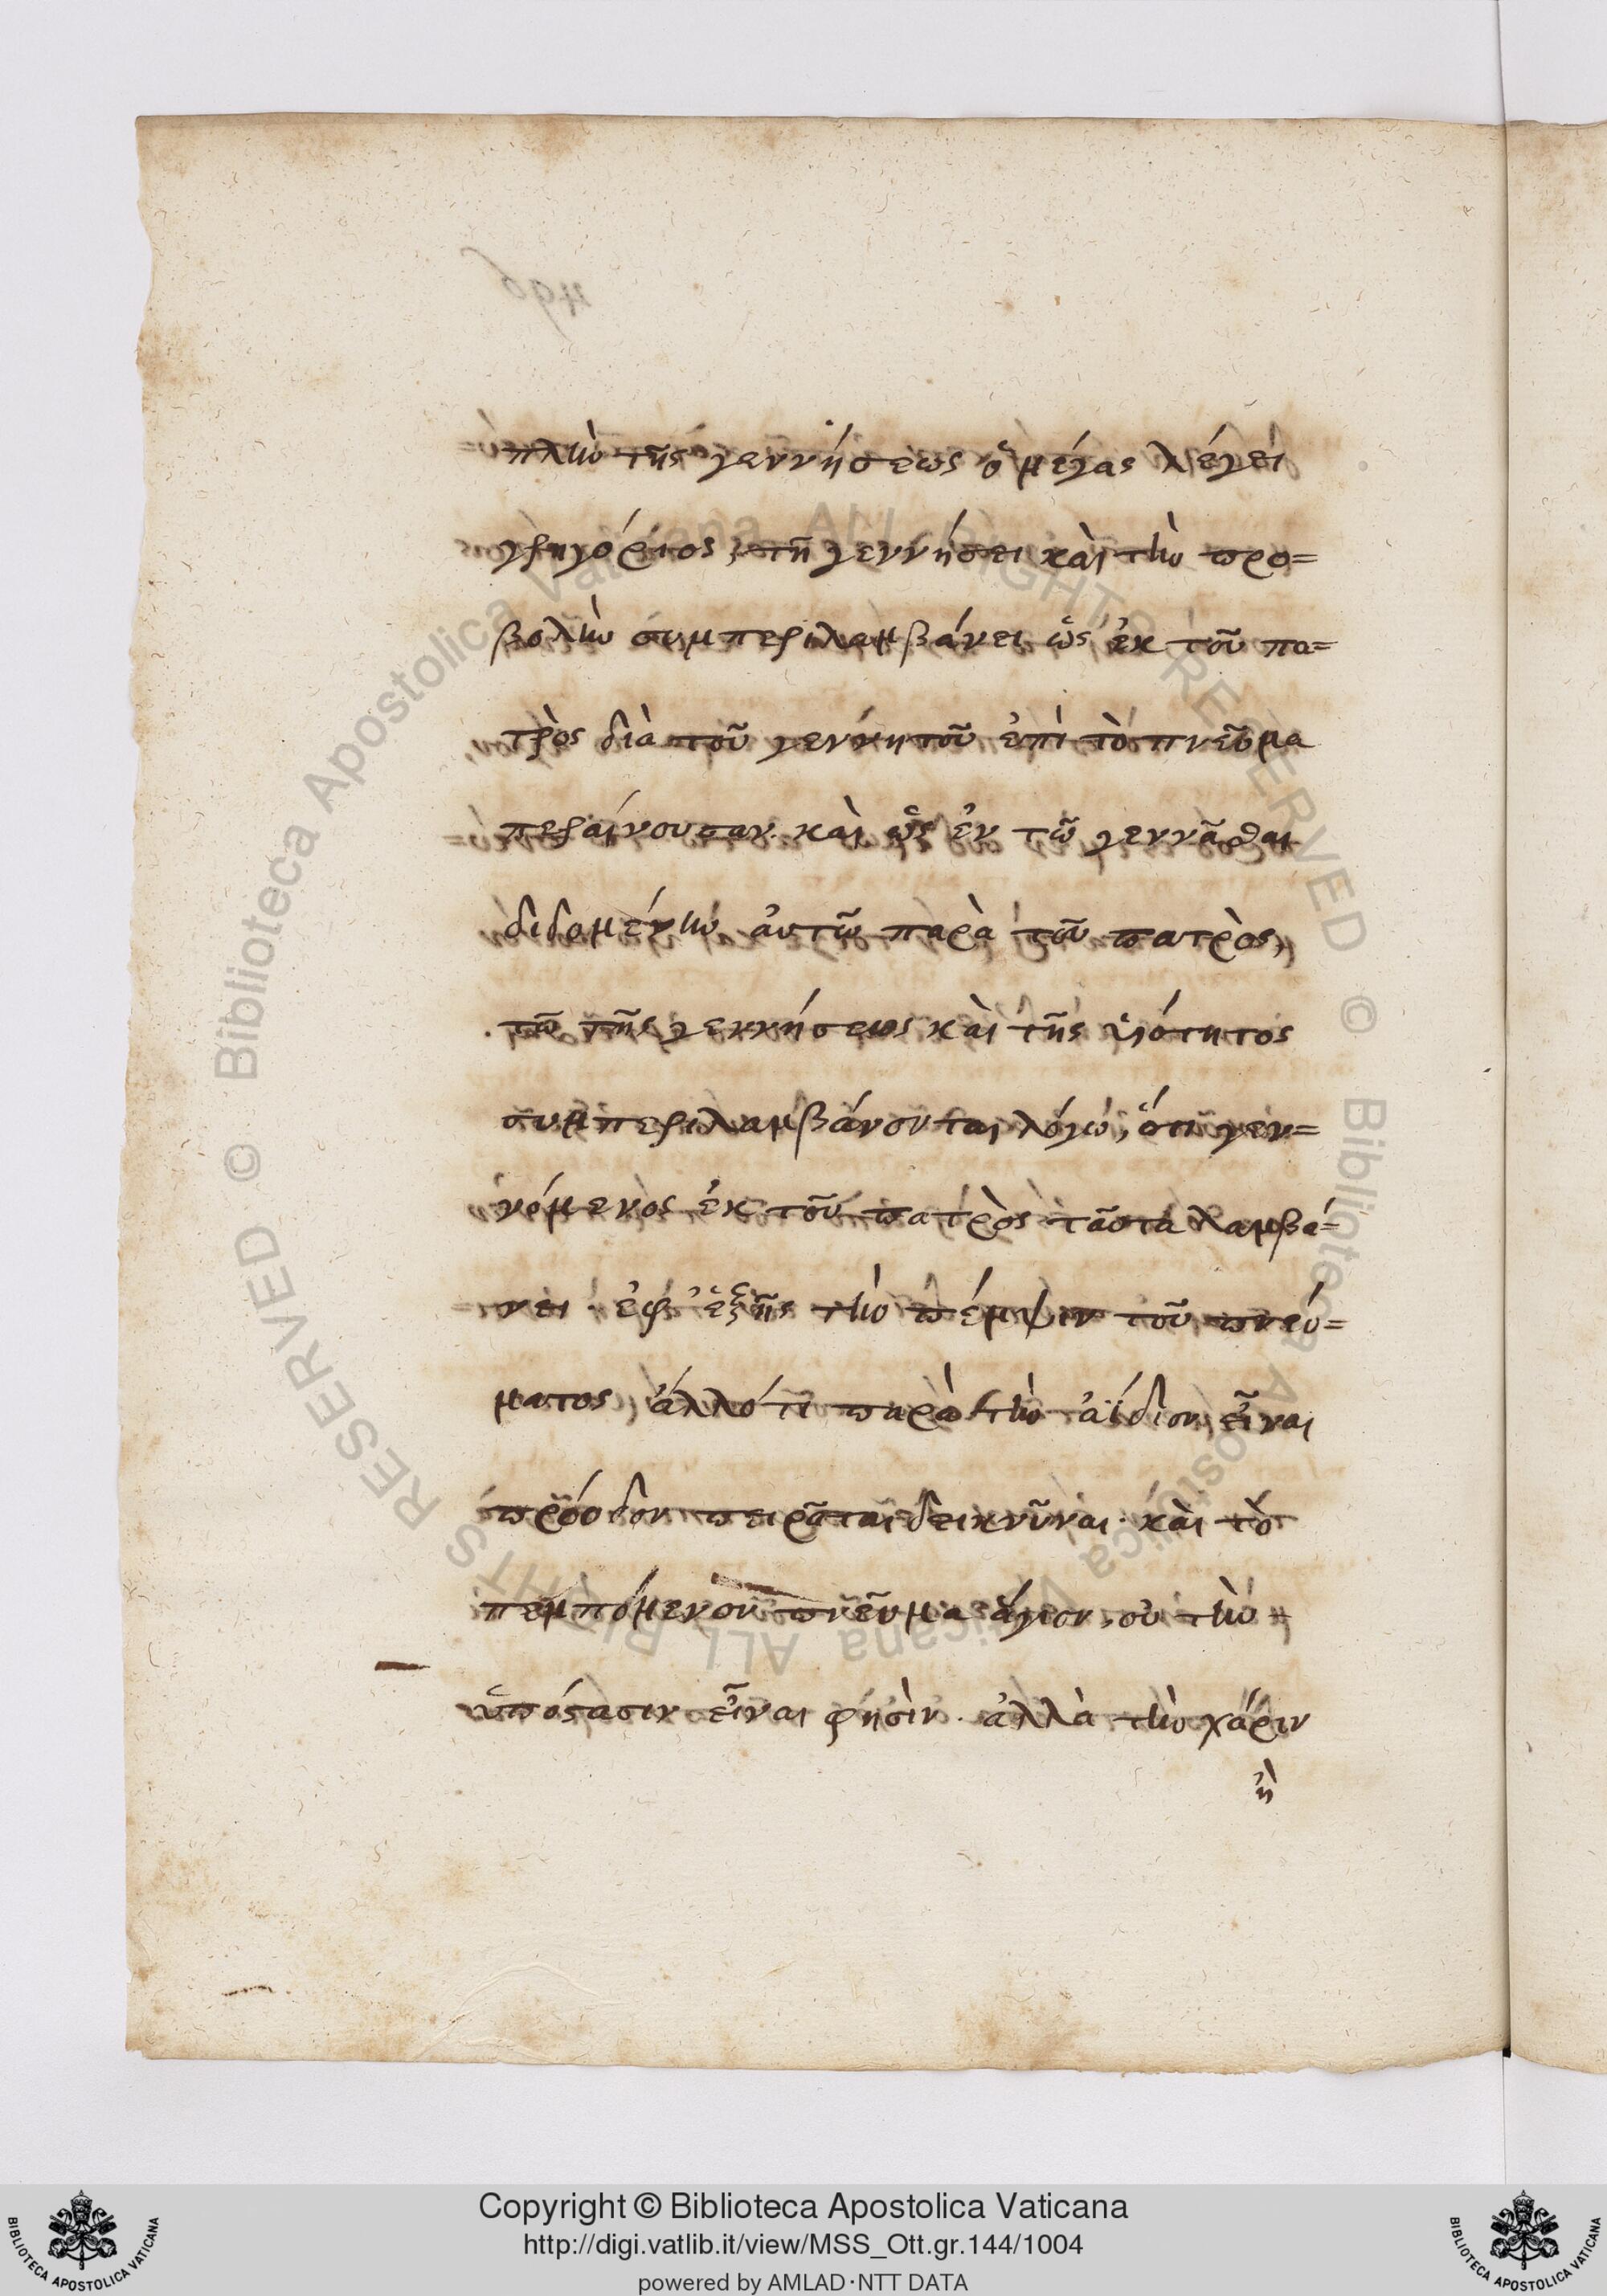 πλὴν τῆς γεννήσεως ὁ μέγας λέγει
γρηγόριος, τῆ γεννήσει καὶ τὴν προ=
βολὴν συμπεριλαμβάνει ὡς ἐκ τοῦ πα=
τρὸς διὰ τοῦ γεννητοῦ ἐπὶ τὸ πνεῦμα
περαίνουσαν. καὶ ὡς ἐν τῶ γεννᾶσθαι
διδομένην αὐτῶ παρὰ τοῦ πατρὸς,
τῶ τῆς γεννήσεως καὶ τῆς υἱότητος
συμπεριλαμβάνονται λόγω, ὅτι γεν=
νόμενος ἐκ τοῦ πατρὸς ταῦτα λαμβά=
νει. ἐφ' ἑξῆς τὴν πέμψιν τοῦ πνεύ=
ματος, ἄλλό τι παρὰ τὴν ἀΐδιον εἶναι
πρόοδον πειρᾶται δεικνῦναι. καὶ τὸ
πεμπόμενον πνεῦμα ἅγιον, οὐ τὴν
ὑπόστασιν εἶναι φησὶν. ἀλλὰ τὴν χάριν
ἢ
© Biblioteca Apostolica Vaticana ALL RIGHTS RESERVED © Biblioteca Apostolica Vaticana ALL RIGHTS RESERVED
BIBLIOTECA APOSTOLICA VATICANA
Copyright © Biblioteca Apostolica Vaticana
http://digi.vatlib.it/view/MSS_Ott.gr.144/1004
powered by AMLAD·NTT DATA
BIBLIOTECA APOSTOLICA VATICANA